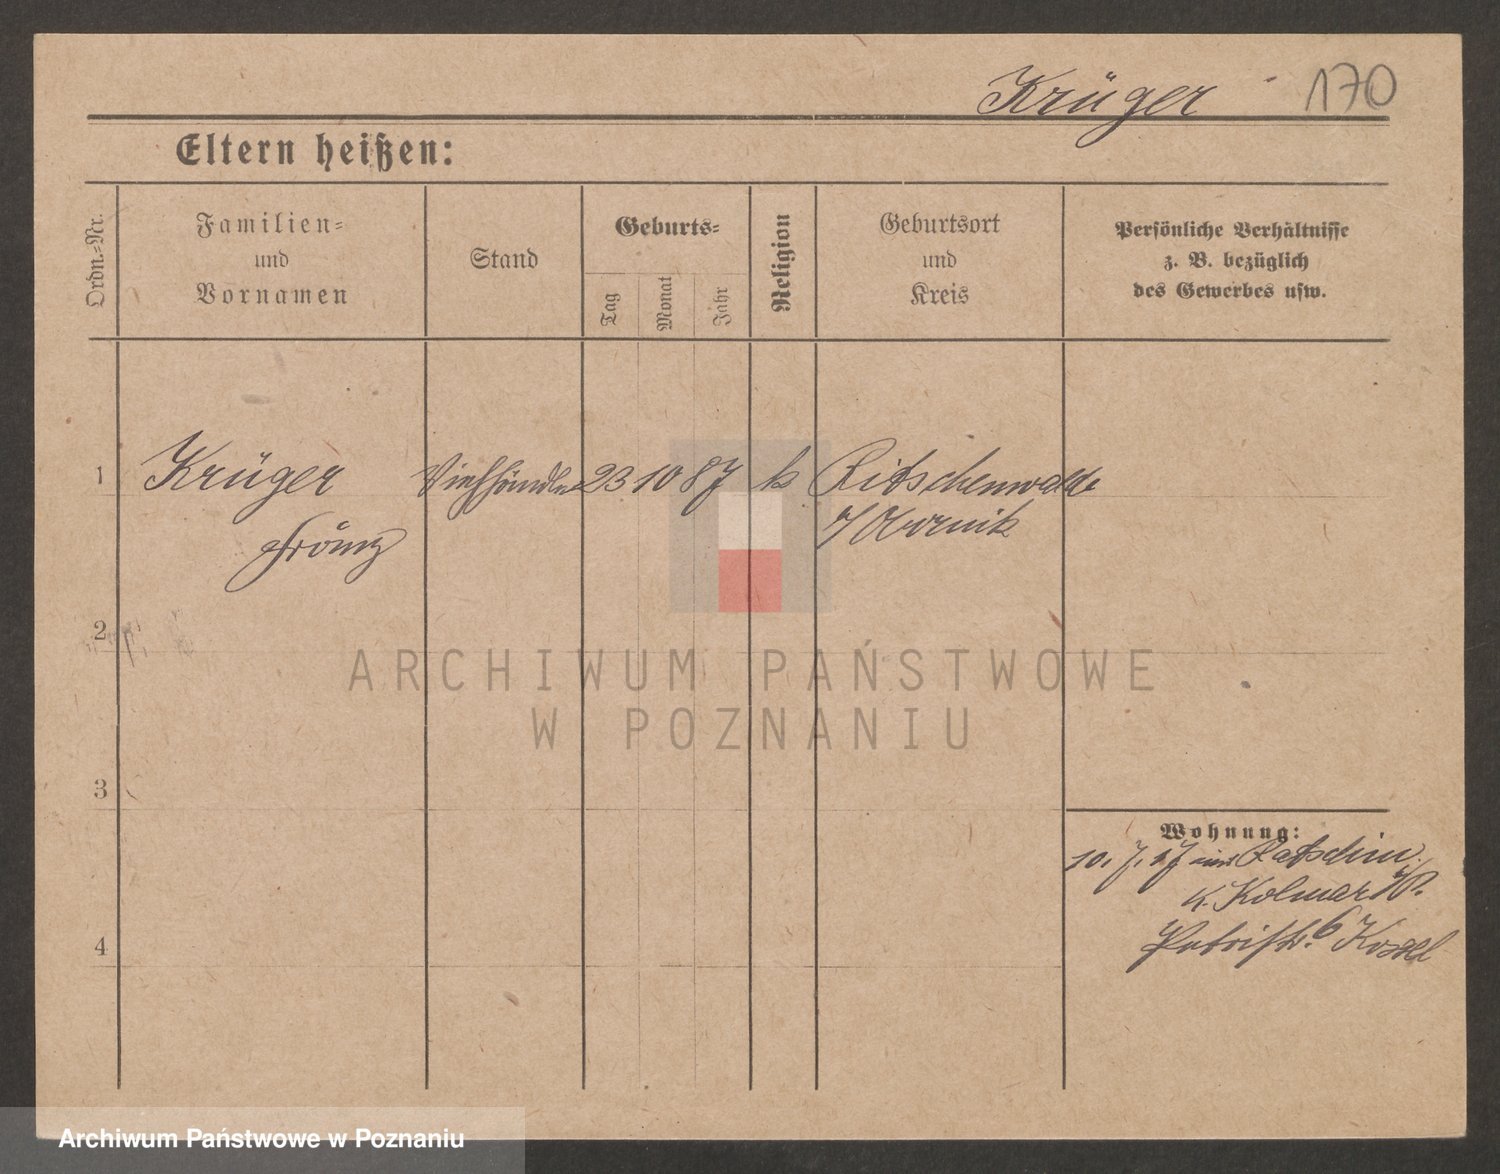 Krüger 170
Eltern heißen:
Ordn.-Nr.
Familien-
und
Vornamen
Stand
Geburts-
Tag
Monat
Jahr
Religion
Geburtsort
und
Kreis
Persönliche Verhältnisse
z. B. bezüglich
des Gewerbes usw.
1 Krüger Viehhändler 23 10 87 k Ritschenwalde
Franz
Obornik
2
3
4
Wohnung:
10. 7. 17
K. Kolmar i/P.
6
ARCHIWUM PAŃSTWOWE
W POZNANIU
Archiwum Państwowe w Poznaniu